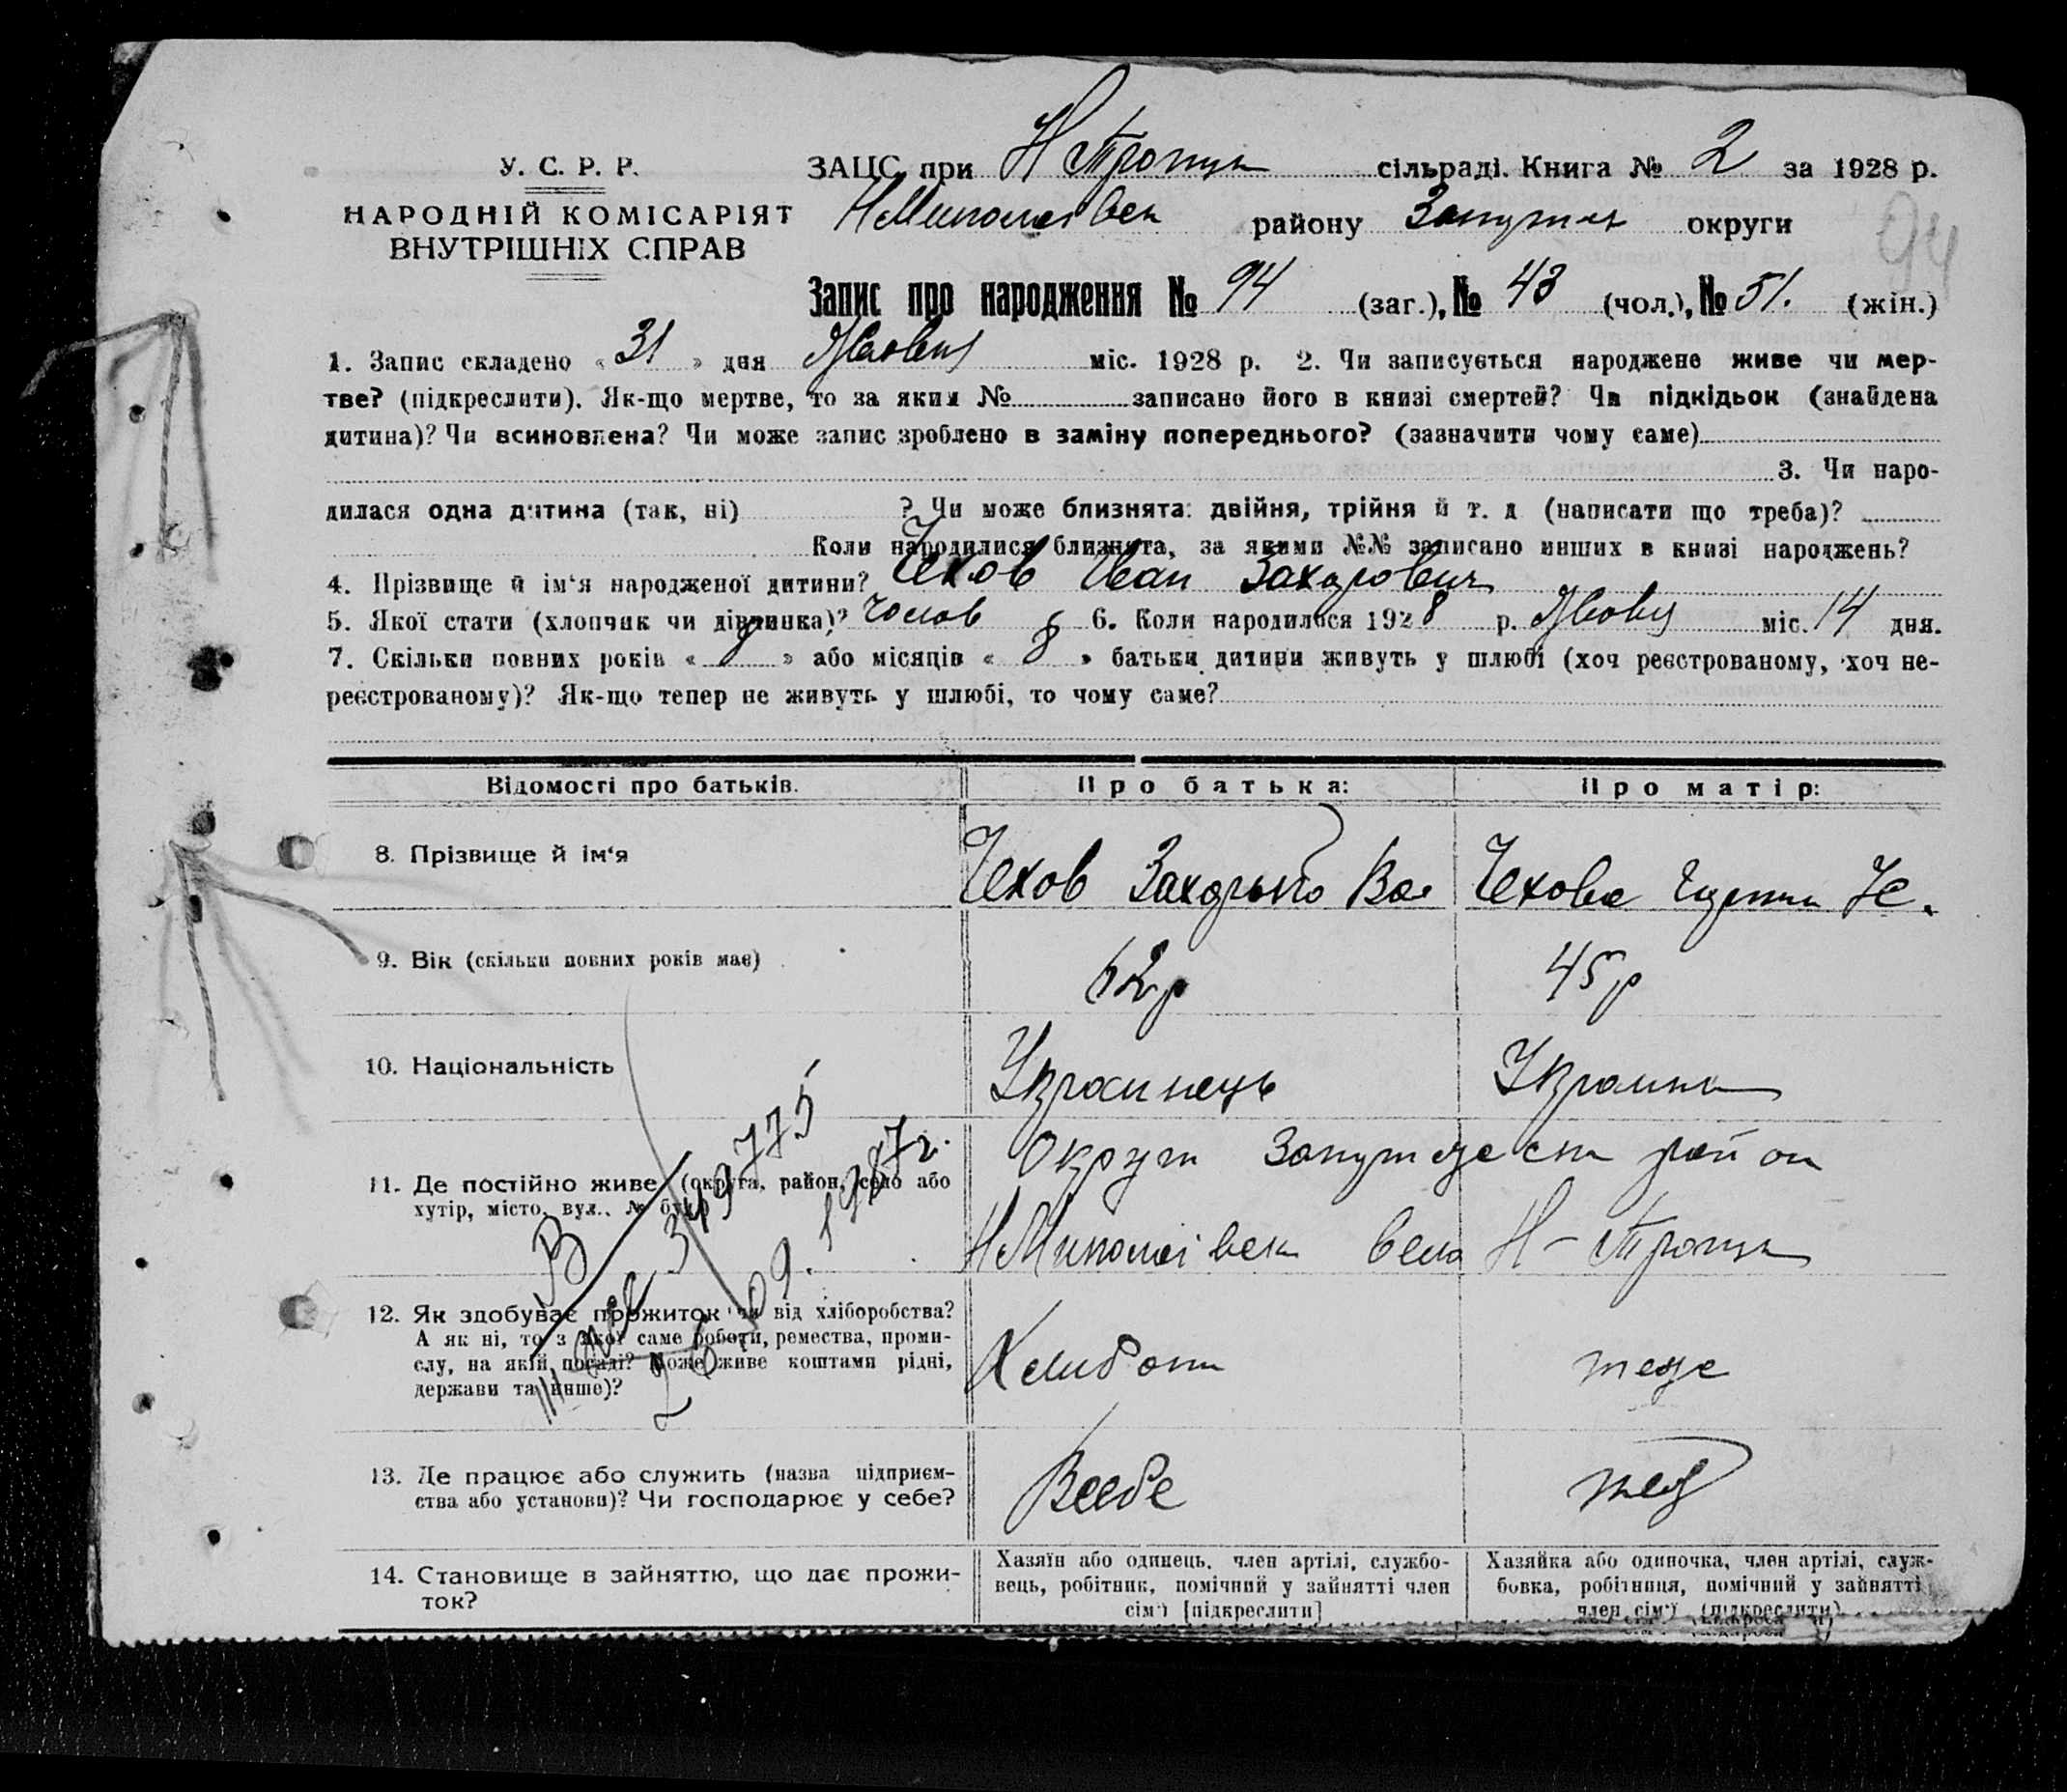 У. С. Р. Р.
НАРОДНІЙ КОМІСАРІЯТ
ВНУТРІШНІХ СПРАВ
ЗАЦС при Н Троицк сільраді. Книга № 2 за 1928 р.
району округи
94
Запис про народження № 94 (заг.), № 43 (чол.), № 51. (жін.)
1. Запис складено « 31 » дня міс. 1928 р. 2. Чи записується народжене живе чи мер-
тве? (підкреслити). Як-що мертве, то за яким № записано його в книзі смертей? Чи підкідьок (знайдена
дитина)? Чи всиновлена? Чи може запис зроблено в заміну попереднього? (зазначити чому саме)
3. Чи наро-
дилася одна дитина (так, ні) ? Чи може близнята: двійня, трійня й т. д (написати що треба)?
Коли народилися близнята, за якими №№ записано инших в книзі народжень?
4. Прізвище й ім‘я народженої дитини? Чехов Иван Захарович
5. Якої стати (хлопчик чи дівчинка)? Чолов 6. Коли народилися 1928 р. міс. 14 дня.
7. Скільки повних років « » або місяців « 8 » батьки дитини живуть у шлюбі (хоч реєстрованому, хоч не-
реєстрованому)? Як-що тепер не живуть у шлюбі, то чому саме?
Відомості про батьків. Про батька: Про матір:
8. Прізвище й ім‘я Чехов Вас Чехова
9. Вік (скільки повних років має) 62р 45р
10. Національність Украинець Украинка
11. Де постійно живе (округа, район, село або
хутір, місто, вул., № буд.)
Округи район
села Н-Троицк
12. Як здобуває прожиток чи від хліборобства?
А як ні, то з якої саме роботи, ремества, проми-
слу, на якій посаді? Може живе коштами рідні,
держави та инше)?
теже
13. Де працює або служить (назва підприєм-
ства або установи)? Чи господарює у себе?
Всебе
14. Становище в зайняттю, що дає прожи-
ток?
Хазяїн або одинець, член артілі, службо-
вець, робітник, помічний у зайнятті член
сім‘ї [підкреслити]
Хазяйка або одиночка, член артілі, служ-
бовка, робітниця, помічний у зайнятті
член сім‘ї (підкреслити)
349775
1987г.